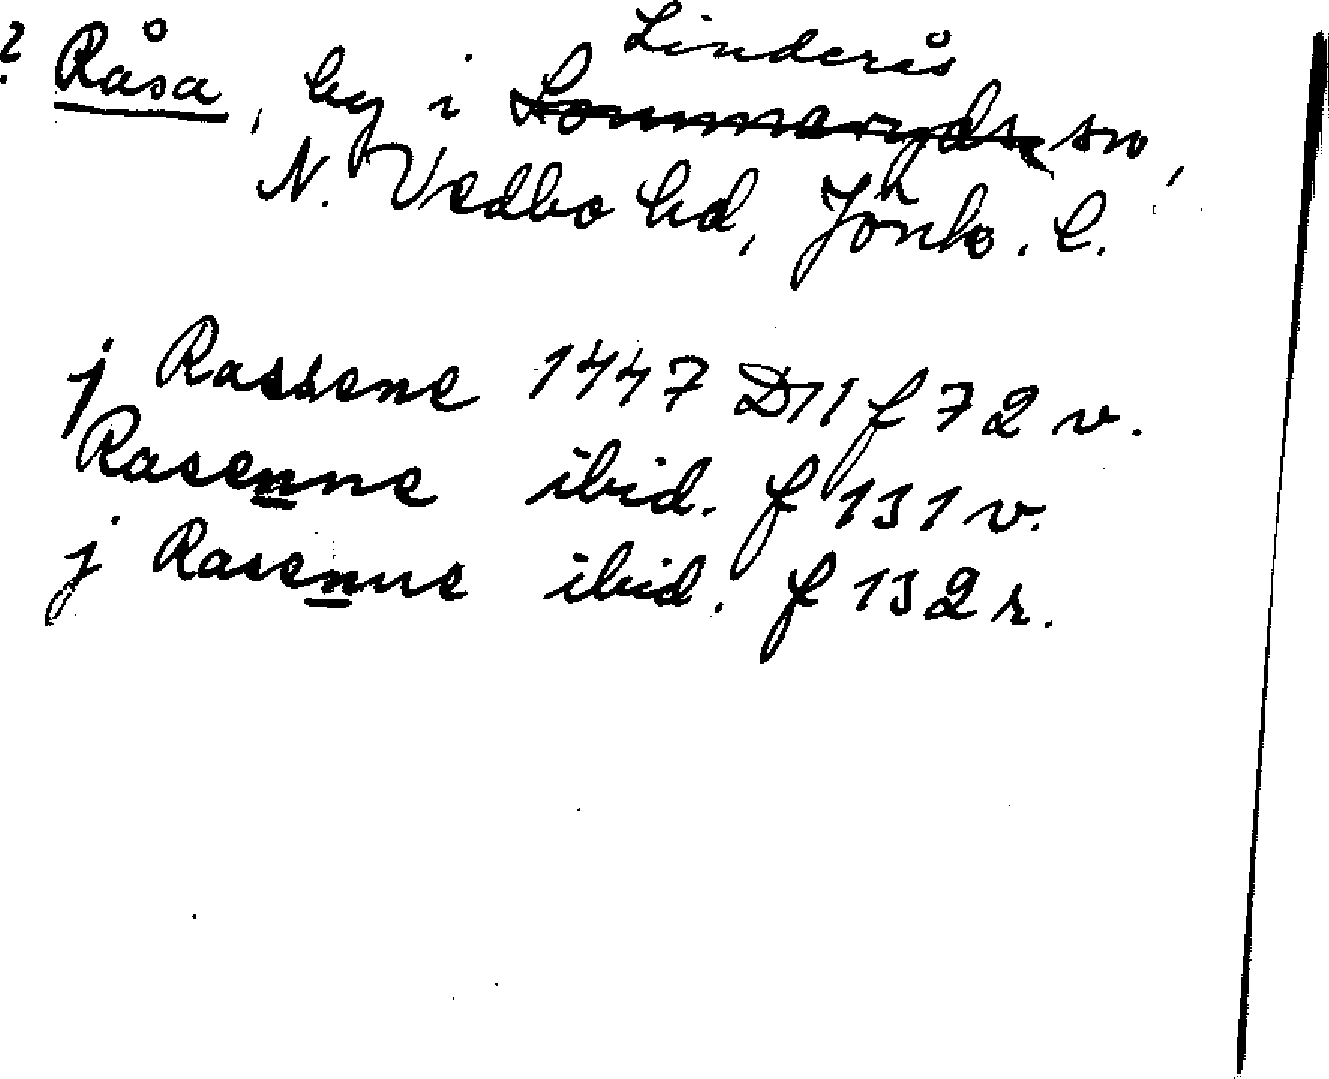 ? Råsa, by i Linderås ~~Lommaryds~~ sn,
N. Vedbo hd, Jönk. l.
j Rassene 1447 D11 f 72 v.
Rasenne ibid. f 131 v.
j Rasenne ibid. f 132 r.